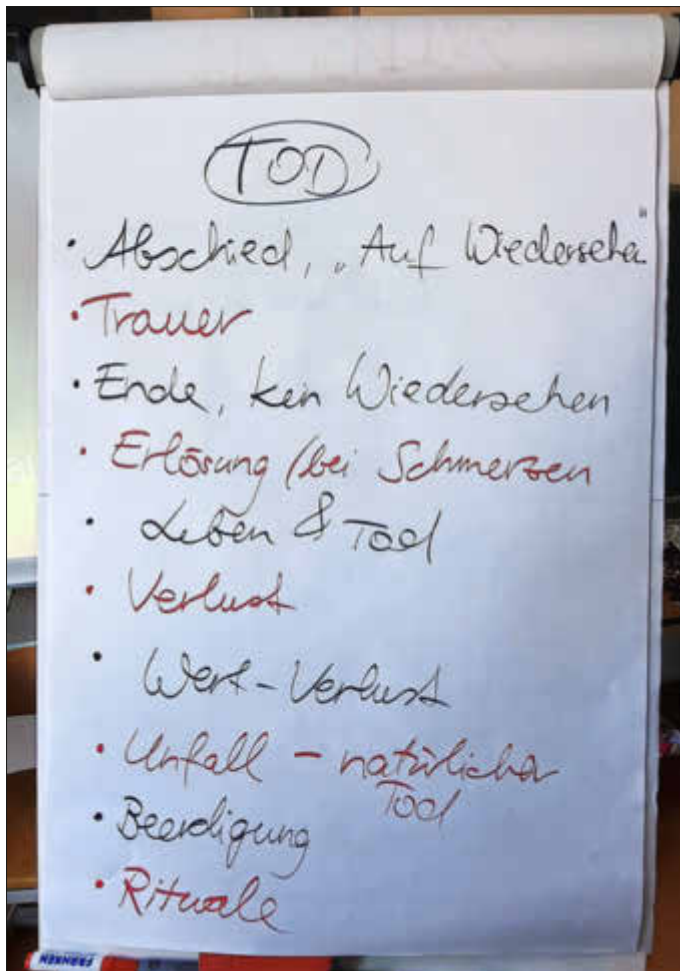 TOD
• Abschied, „Auf Wiedersehen"
• Trauer
• Ende, kein Wiedersehen
• Erlösung (bei Schmerzen
• Leben & Tod
• Verlust
• Wert-Verlust
• Unfall – natürlicher
Tod
• Beerdigung
• Rituale
FRANKEN